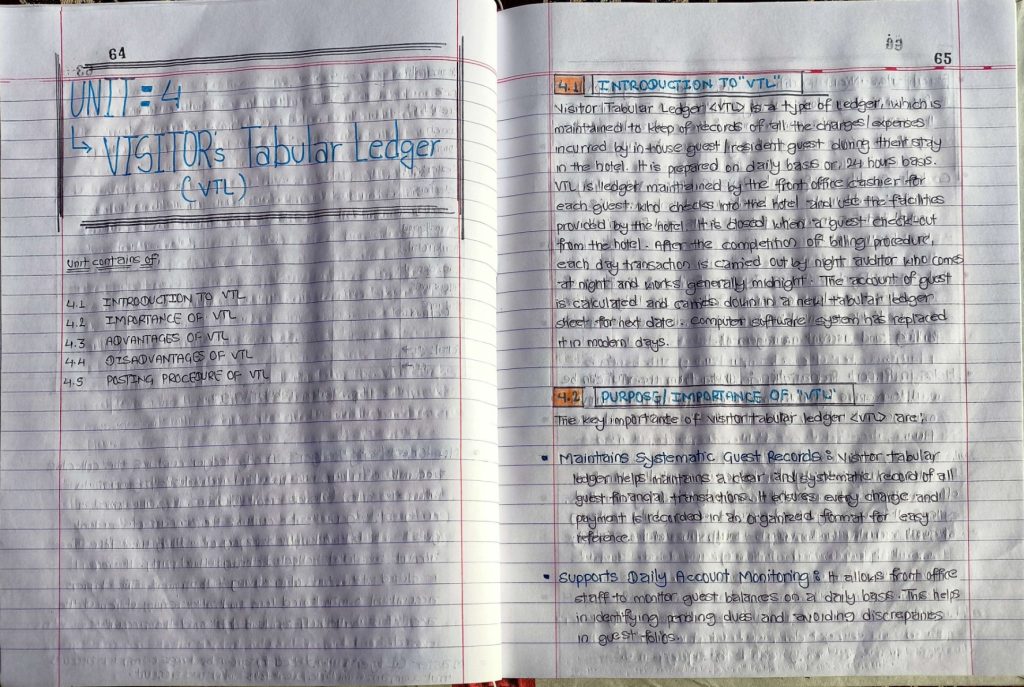 64
UNIT = 4
↳ VISITOR's Tabular Ledger
(VTL)
Unit contains of:
4.1 INTRODUCTION TO VTL
4.2 IMPORTANCE OF VTL
4.3 ADVANTAGES OF VTL
4.4 DISADVANTAGES OF VTL
4.5 POSTING PROCEDURE OF VTL
65
4.1 INTRODUCTION TO "VTL"
Visitor Tabular Ledger <VTL> is a type of Ledger, which is
maintained to keep of records of all the charges/expenses
incurred by in-house guest/resident guest during their stay
in the hotel. It is prepared on daily basis or 24 hours basis.
VTL is ledger maintained by the front office cashier for
each guest who checks into the hotel and use the facilities
provided by the hotel. It is closed when a guest check-out
from the hotel. After the completion of billing procedure,
each day transaction is carried out by night auditor who comes
at night and works generally midnight. The account of guest
is calculated and carries down in a new tabular ledger
sheet for next date. computer software system has replaced
it in modern days.
4.2 PURPOSE/IMPORTANCE OF "VTL"
The key importance of visitor tabular ledger <VTL> are:
• Maintains Systematic Guest Records: Visitor tabular
ledger helps maintains a clear and systematic record of all
guest financial transactions. It ensures every charge and
payment is recorded in an organized format for easy
reference.
• Supports Daily Account Monitoring: It allows front office
staff to monitor guest balances on a daily basis. This helps
in identifying pending dues and avoiding discrepancies
in guest folios.